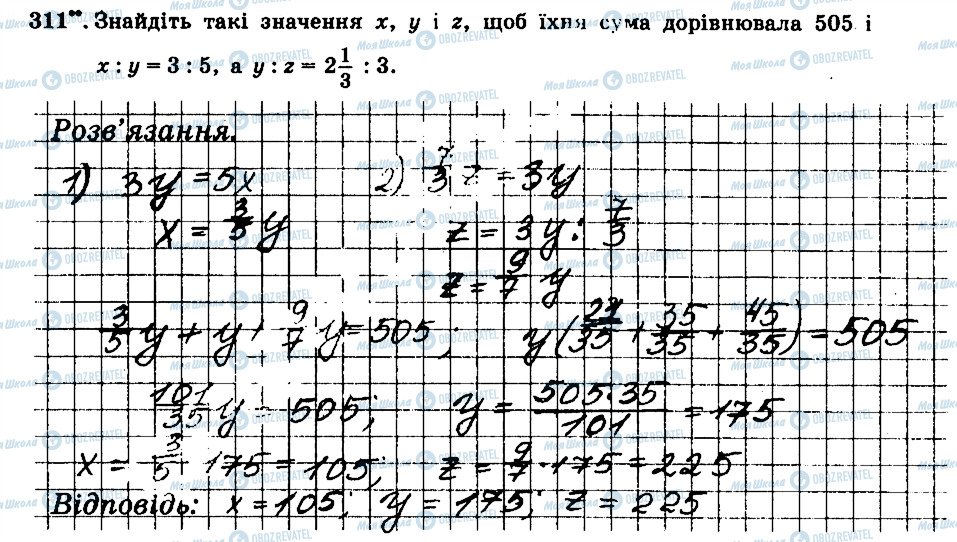 311**. Знайдіть такі значення x, y і z, щоб їхня сума дорівнювала 505 і
x : y = 3 : 5, а y : z = 2 1/3 : 3.
Розв'язання.
1) 3y = 5x 2) 7/3 z = 3y
x = 3/5 y z = 3y : 7/3
z = 9/7 y
3/5 y + y + 9/7 y = 505; y(21/35 + 35/35 + 45/35) = 505
101/35 y = 505; y = 505·35/101 = 175
x = 3/5 · 175 = 105; z = 9/7 · 175 = 225
Відповідь: x = 105; y = 175; z = 225